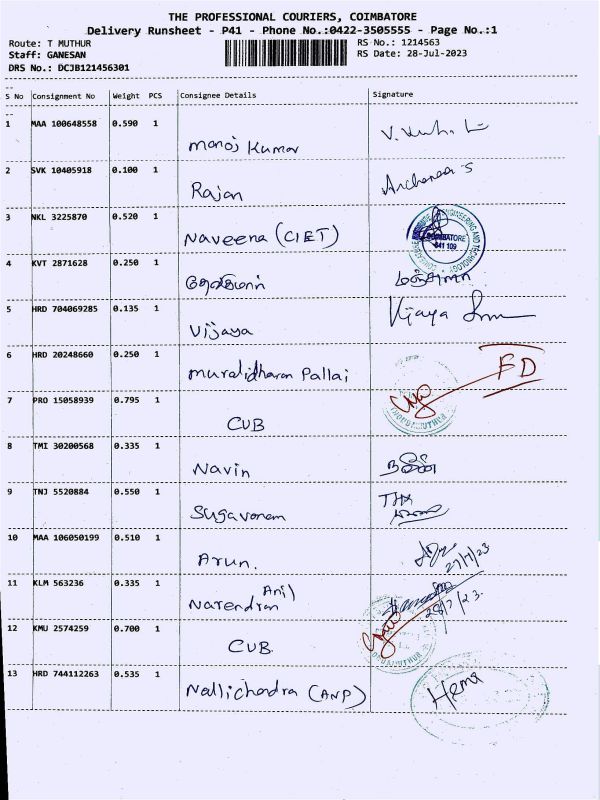 THE PROFESSIONAL COURIERS, COIMBATORE
Delivery Runsheet - P41 - Phone No.:0422-3505555 - Page No.:1
Route: T MUTHUR RS No.: 1214563
Staff: GANESAN RS Date: 28-Jul-2023
DRS No.: DCJB121456301
S No Consignment No Weight PCS Consignee Details Signature
1 MAA 100648558 0.590 1 Manoj Kumar
2 SVK 10405918 0.100 1 Rajan Archanaa S
3 NKL 3225870 0.520 1 Naveena (CIET) COIMBATORE 641 109
4 KVT 2871628 0.250 1
5 HRD 704069285 0.135 1 Vijaya Vijaya
6 HRD 20248660 0.250 1 Muralidharan Pallai FD
7 PRO 15058939 0.795 1 CUB
8 TMI 30200568 0.335 1 Navin
9 TNJ 5520884 0.550 1 Sugavanam
10 MAA 106050199 0.510 1 Arun. 27/7/23
11 KLM 563236 0.335 1 Narendran Anil 28/7/23.
12 KMU 2574259 0.700 1 CUB.
13 HRD 744112263 0.535 1 Nallichandra (ANP) Hema